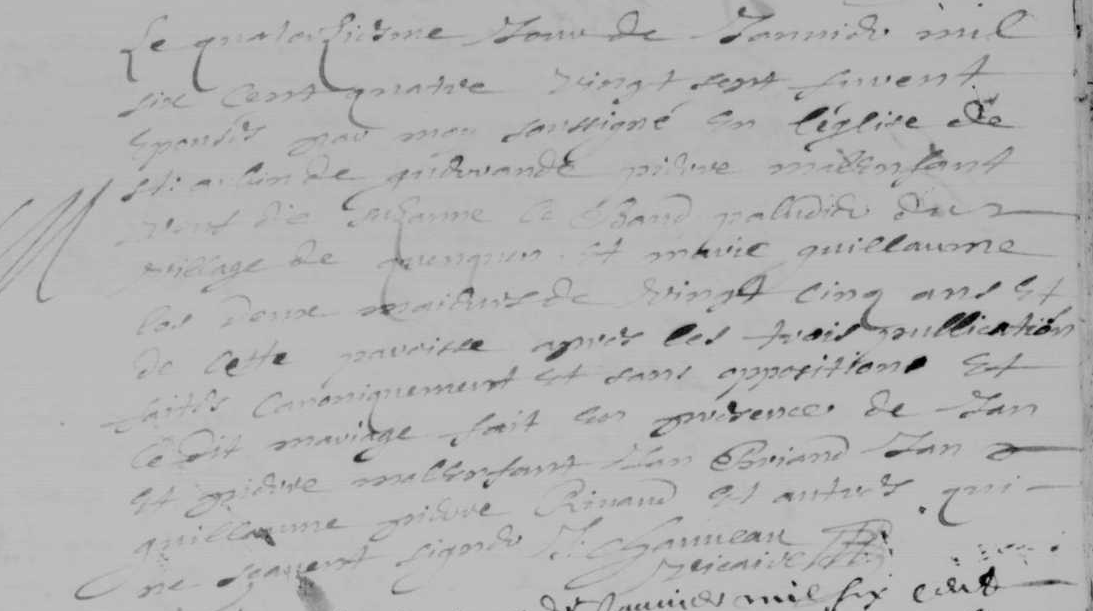 Le quatorziesme Jour de Janvier mil
six cent quatre vingt sept furent
épousés par moy soussigné en l'église de
St: aubin de guerrande pierre mallenfant
veuf de Suzanne le Briand paludier du
village de quenquen et marie guillaume
les deux maieurs de vingt cinq ans et
de cette paroisse apres les trois publication
faites Canoniquement et sans oppositions et
le dit mariage fait en présence de Jan
et pierre mallenfant Jan Briand Jan
guillaume pierre Rinaud et autres qui
ne sçavent signer J. Chauveau
vicaire
de Janvier mil six cent